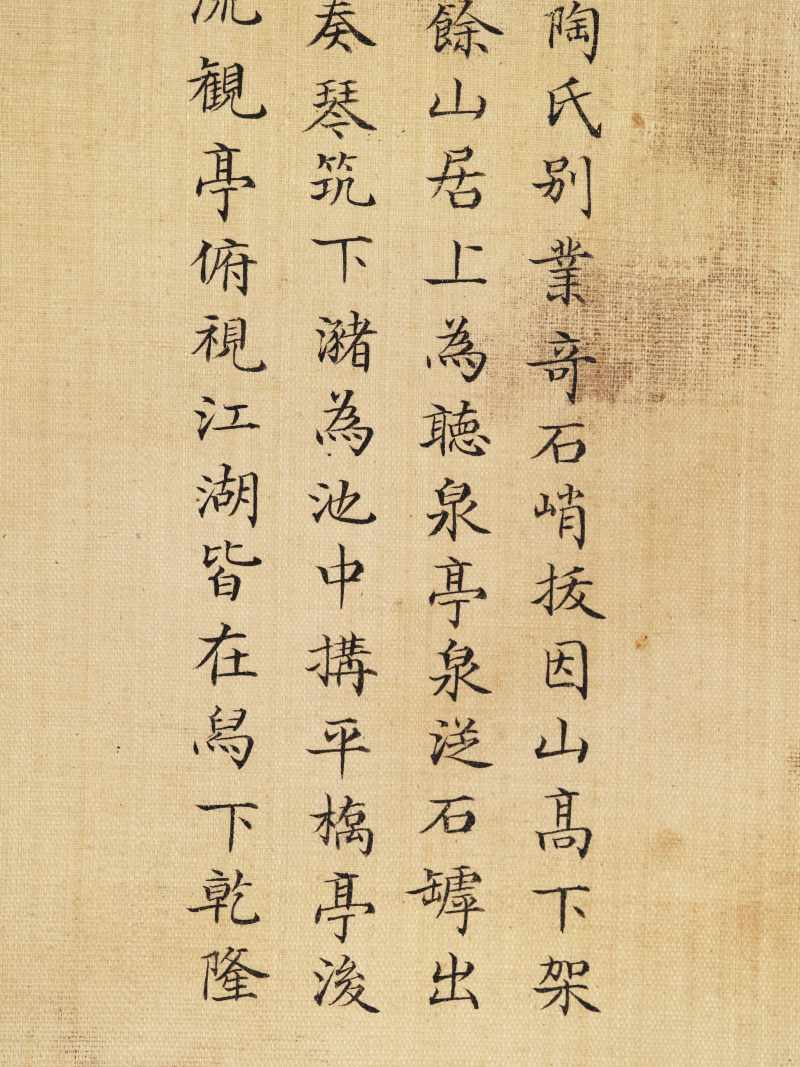 陶氏别業奇石峭拔因山髙下架
餘山居上為聽泉亭泉從石罅出
奏琴筑下瀦為池中搆平橋亭後
流觀亭俯視江湖皆在舄下乾隆